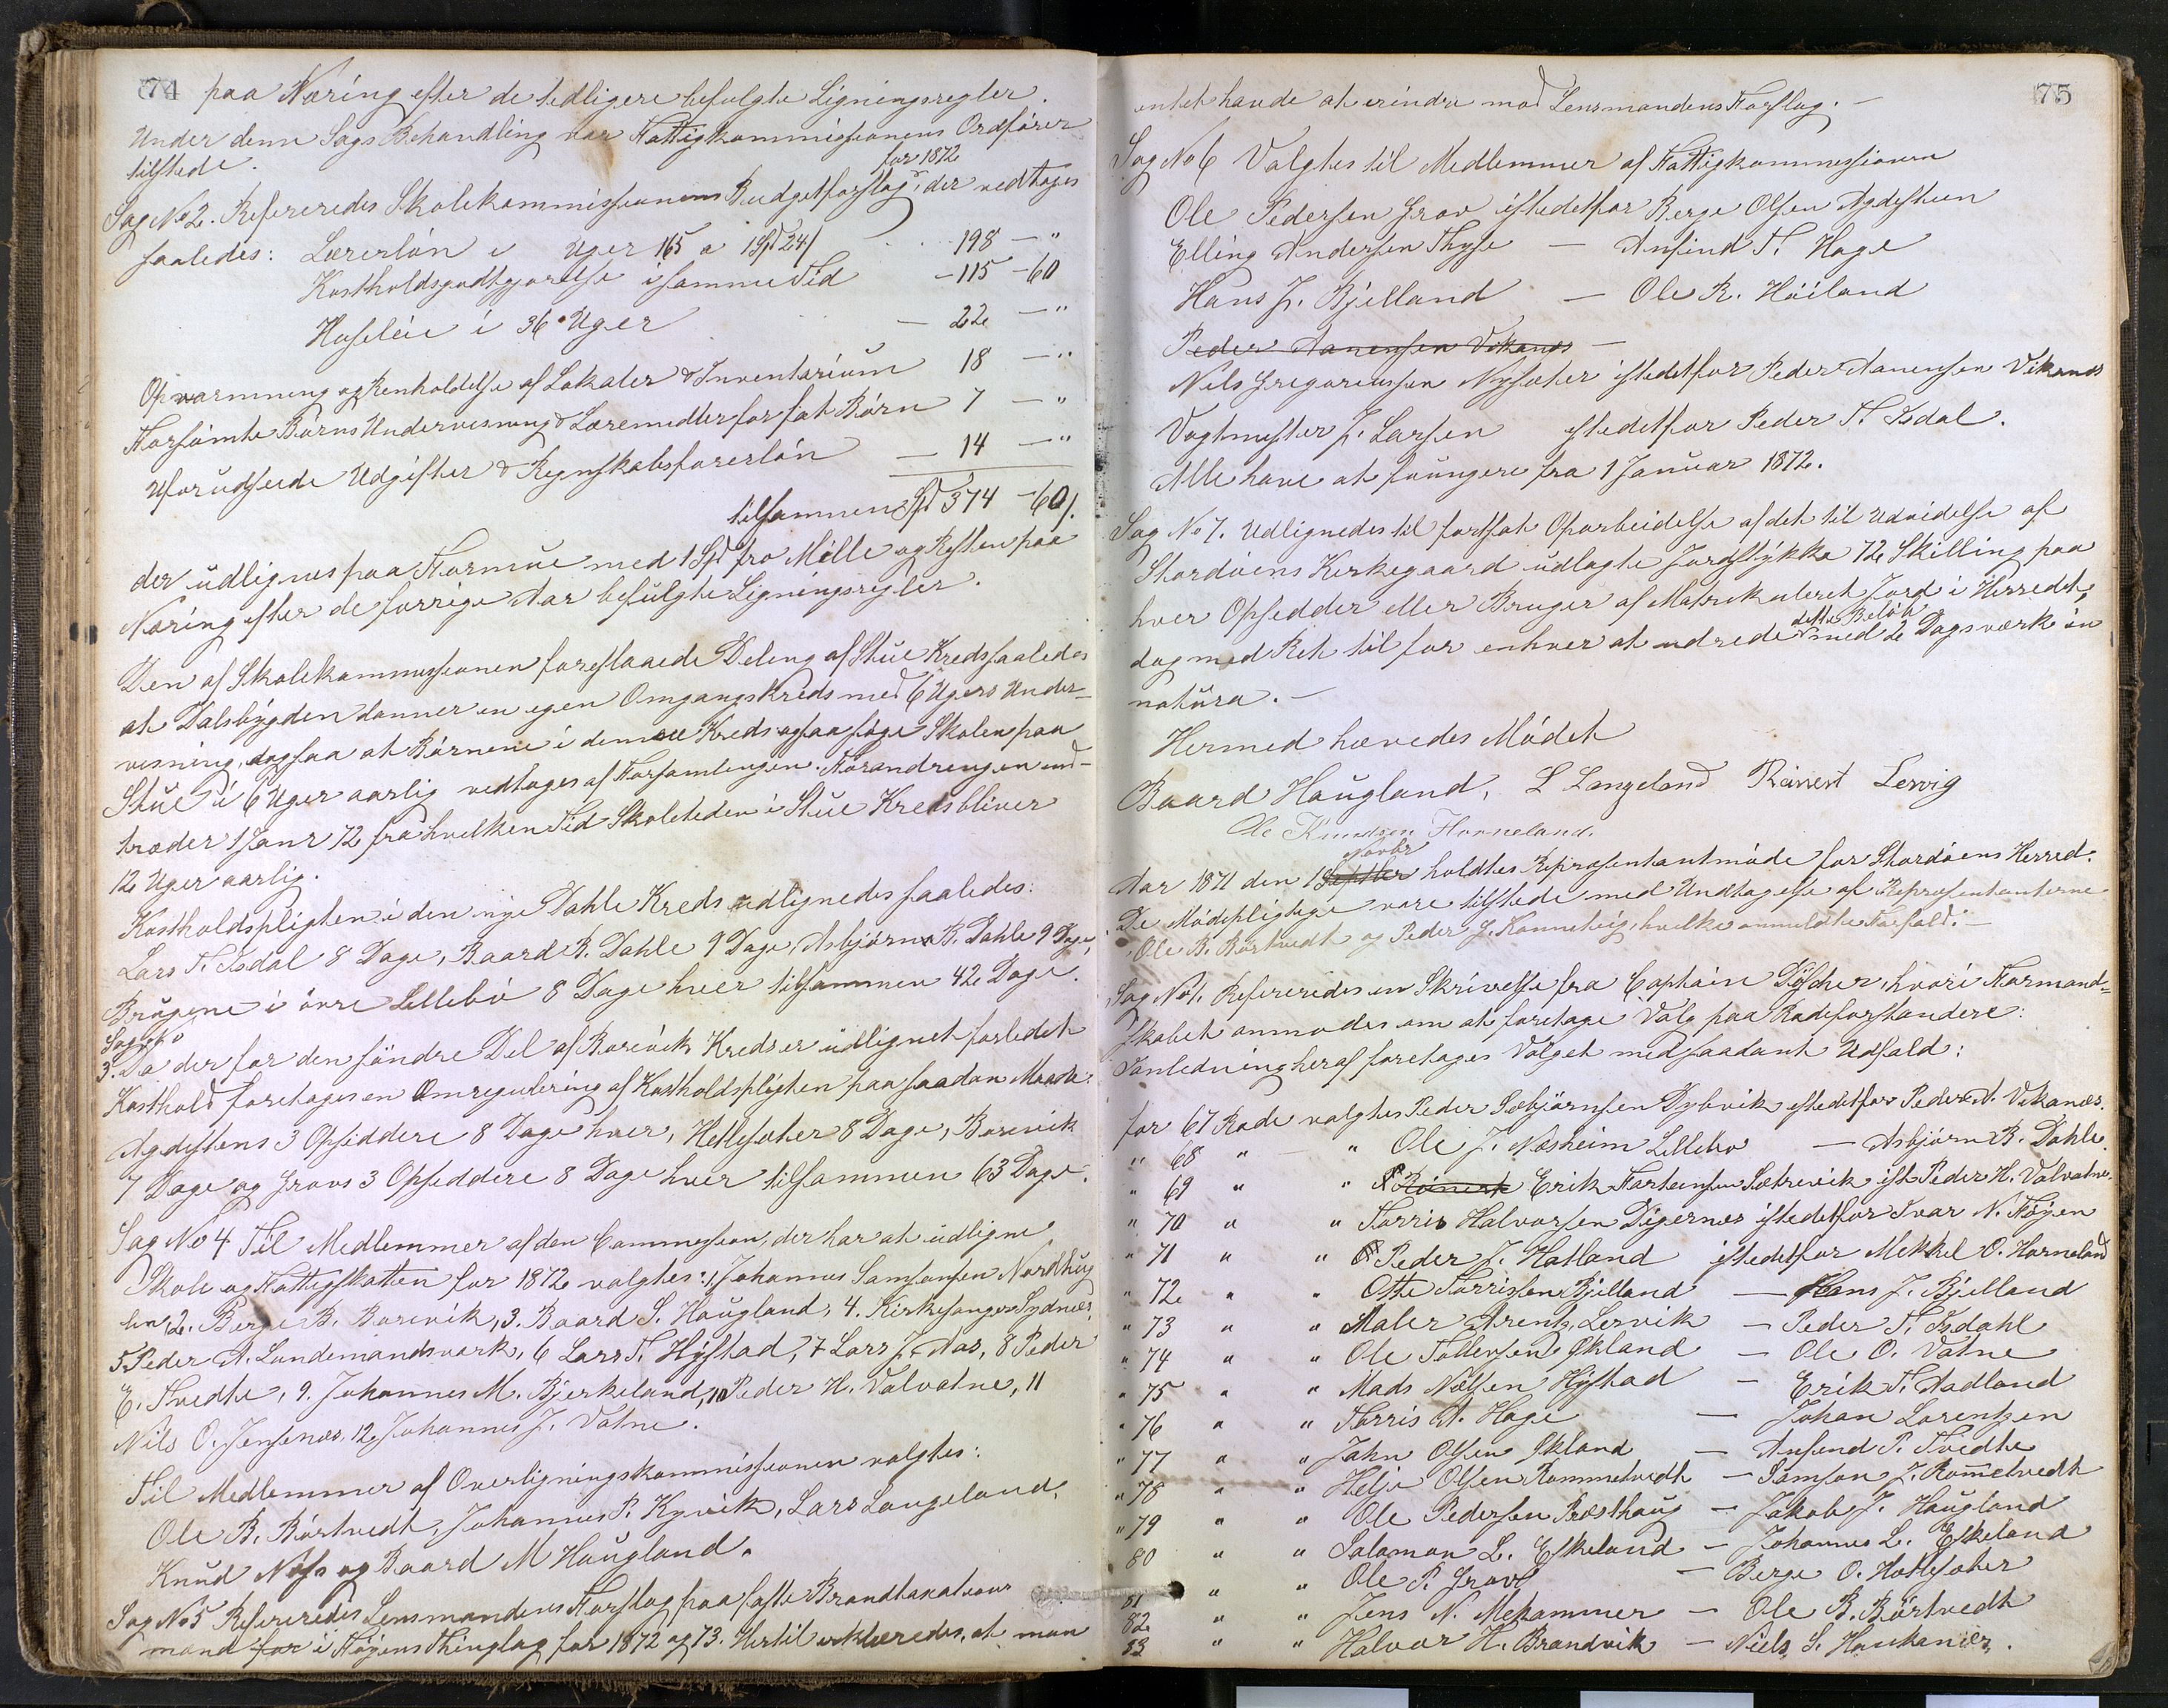 74 paa Næring efter de tidligere befulgte Ligningsregler.
Under denne Sags Behandling var Fattigkommissionens Ordfører
tilstede.
for 1872
Sag No 2. Refereredes Skolekommissionens Budgetforslag, der vedtages
saaledes: Lærerløn i Uger 165 a 1 Spd 24 ſ 198 — "
Kostholdsgodtgjørelse i samme Tid — 115 — 60
Husleie i 36 Uger — 22 — "
Opvarmning og Renholdelse af Lokaler & Inventarium 18 — "
Forsømte Børns Undervisning & Læremidler for fat. Børn 7 — "
Uforudseede Udgifter & Regnskabsførerløn — 14 — "
tilsammen Spd 374 — 60 ſ.
der udlignes paa Formue med 1 Spd pro Mille og Resten paa
Næring efter de forrige Aar befulgte Ligningsregler.
Den af Skolekommissionen foreslaaede Deling af Stue Kreds saaledes
at Dalsbygden danner en egen Omgangskreds med 6 Ugers Under-
visning, dog saa at Børnene i denne Kreds ogsaa søge Skolen paa
Stue i 6 Uger aarlig vedtages af Forsamlingen. Forandringen ind-
træder 1 Janr 72 fra hvilken Tid Skoletiden i Stue Kreds bliver
12 Uger aarlig.
Kostholdspligten i den nye Dahle Kreds udlignedes saaledes:
Lars T. Isdal 8 Dage, Baard B. Dahle 9 Dage, Asbjørn B. Dahle 9 Dage,
Brugene i øvre Lillebø 8 Dage hver tilsammen 42 Dage.
Sag No
3. Da der for den søndre Del af Borevik Kreds er udlignet forlidet
Kosthold foretages en Omregulering af Kostholdspligten paa saadan Maade:
Agdestens 3 Opsiddere 8 Dage hver, Hettesæter 8 Dage, Borevik
7 Dage og Grovs 3 Opsiddere 8 Dage hver tilsammen 63 Dage.
Sag No 4 Til Medlemmer af den Commission, der har at udligne
Skole og Fattigskatten for 1872 valgtes: 1, Johannes Samsonsen Nordhug
len 2. Berge B. Borevik, 3. Baard S. Haugland, 4. Kirkesanger Sydnæs,
5 Peder A. Lundemandsværk, 6 Lars T. Hystad, 7 Lars J. Aas, 8 Peder
E. Tvedte, 9. Johannes M. Bjerkeland, 10 Peder H. Valvatne, 11
Nils O. Jensenæs, 12, Johannes J. Vatne.
Til Medlemmer af Overligningskommissionen valgtes:
Ole B. Børtvedt, Johannes P. Kyvik, Lars Langeland,
Knud Næss og Baard M Haugland.
Sag No 5 Refereredes Lensmandens Forslag paa faste Brandtaxations
mænd for i Føyens Thinglag for 1872 og 73. Hertil erklæredes, at man
75
intet havde at erindre mod Lensmandens Forslag. —
Sag No 6 Valgtes til Medlemmer af Fattigkommissionen
Ole Pedersen Grov istedetfor Berge Olsen Agdesteen
Elling Andersen Thyse — Anfind T. Hage
Hans J. Bjelland — Ole R. Høiland
Peder Aanensen Vikanes —
Nils Gregoriussen Nysæter istedetfor Peder Aanensen Vikanes
Vagtmester J. Larsen istedetfor Peder T. Isdal.
Alle have at foungere fra 1 Januar 1872.
Sag No 7. Udlignedes til fortsat Oparbeidelse af det til Udvidelse af
Stordøens Kirkegaard udlagte Jordstykke 72 Skilling paa
hver Opsidder eller Bruger af Matrikuleret Jord i Herredet,
dette Beløb
dog med Ret til for enhver at udrede med 2 Dagsværk in
natura. —
Hermed hævedes Mødet
Baard Haugland, L Langeland Reinert Lervig
Ole Knudsen Horneland.
Novbr
Aar 1871 den 1 Septbr holdtes Repræsentantmøde for Stordøens Herred.
De Mødepligtige vare tilstede med Undtagelse af Repræsentanterne
Ole B. Børtvedt og Peder J. Kannelvig, hvilke anmeldte Forfald. —
Sag No 1. Refereredes en Skrivelse fra Captain Dyscher, hvori Formand-
skabet anmodes om at foretage Valg paa Rodeforstandere:
I anledning heraf foretages Valget med saadant Udfald:
for 67 Rode valgtes Peder Sæbjørnsen Dybvik istedetfor Peder A. Vikanæs.
" 68 " — " Ole J. Næsheim Lillebø — Asbjørn B. Dahle.
" 69 " " Reinert Erik Tarteinsen Sætrevik ist. Peder H. Valvatne.
" 70 " " Torris Halvorsen Digernes istedetfor Ivar N. Føyen
" 71 " " Peder J. Hatland istedetfor Mekkel O. Horneland
" 72 " " Otte Torrissen Bjelland — Hans J. Bjelland
" 73 " " Maler Arentz, Lervik — Peder T. Isdahl
" 74 " " Ole Tollevsen Økland — Ole O. Vatne
" 75 " " Mads Nilsen Hystad — Erik T. Aadland
" 76 " " Torris A. Hage — Johan Lorentzen
" 77 " " John Olsen Økland — Anfind P. Tvedte
" 78 " " Helje Olsen Rommetvedt — Samson J. Rommetvedt
" 79 " " Ole Pedersen Præsthaug — Jakob J. Haugland
80 " " Salamon L. Eskeland — Johannes L. Eskeland
81 " " Ole P. Grov — Berge O. Hattesæter
82 " " Jens N. Mehammer — Ole B. Børtvedt
83 " " Halvor H. Brandvik — Niels S. Haukanæs.